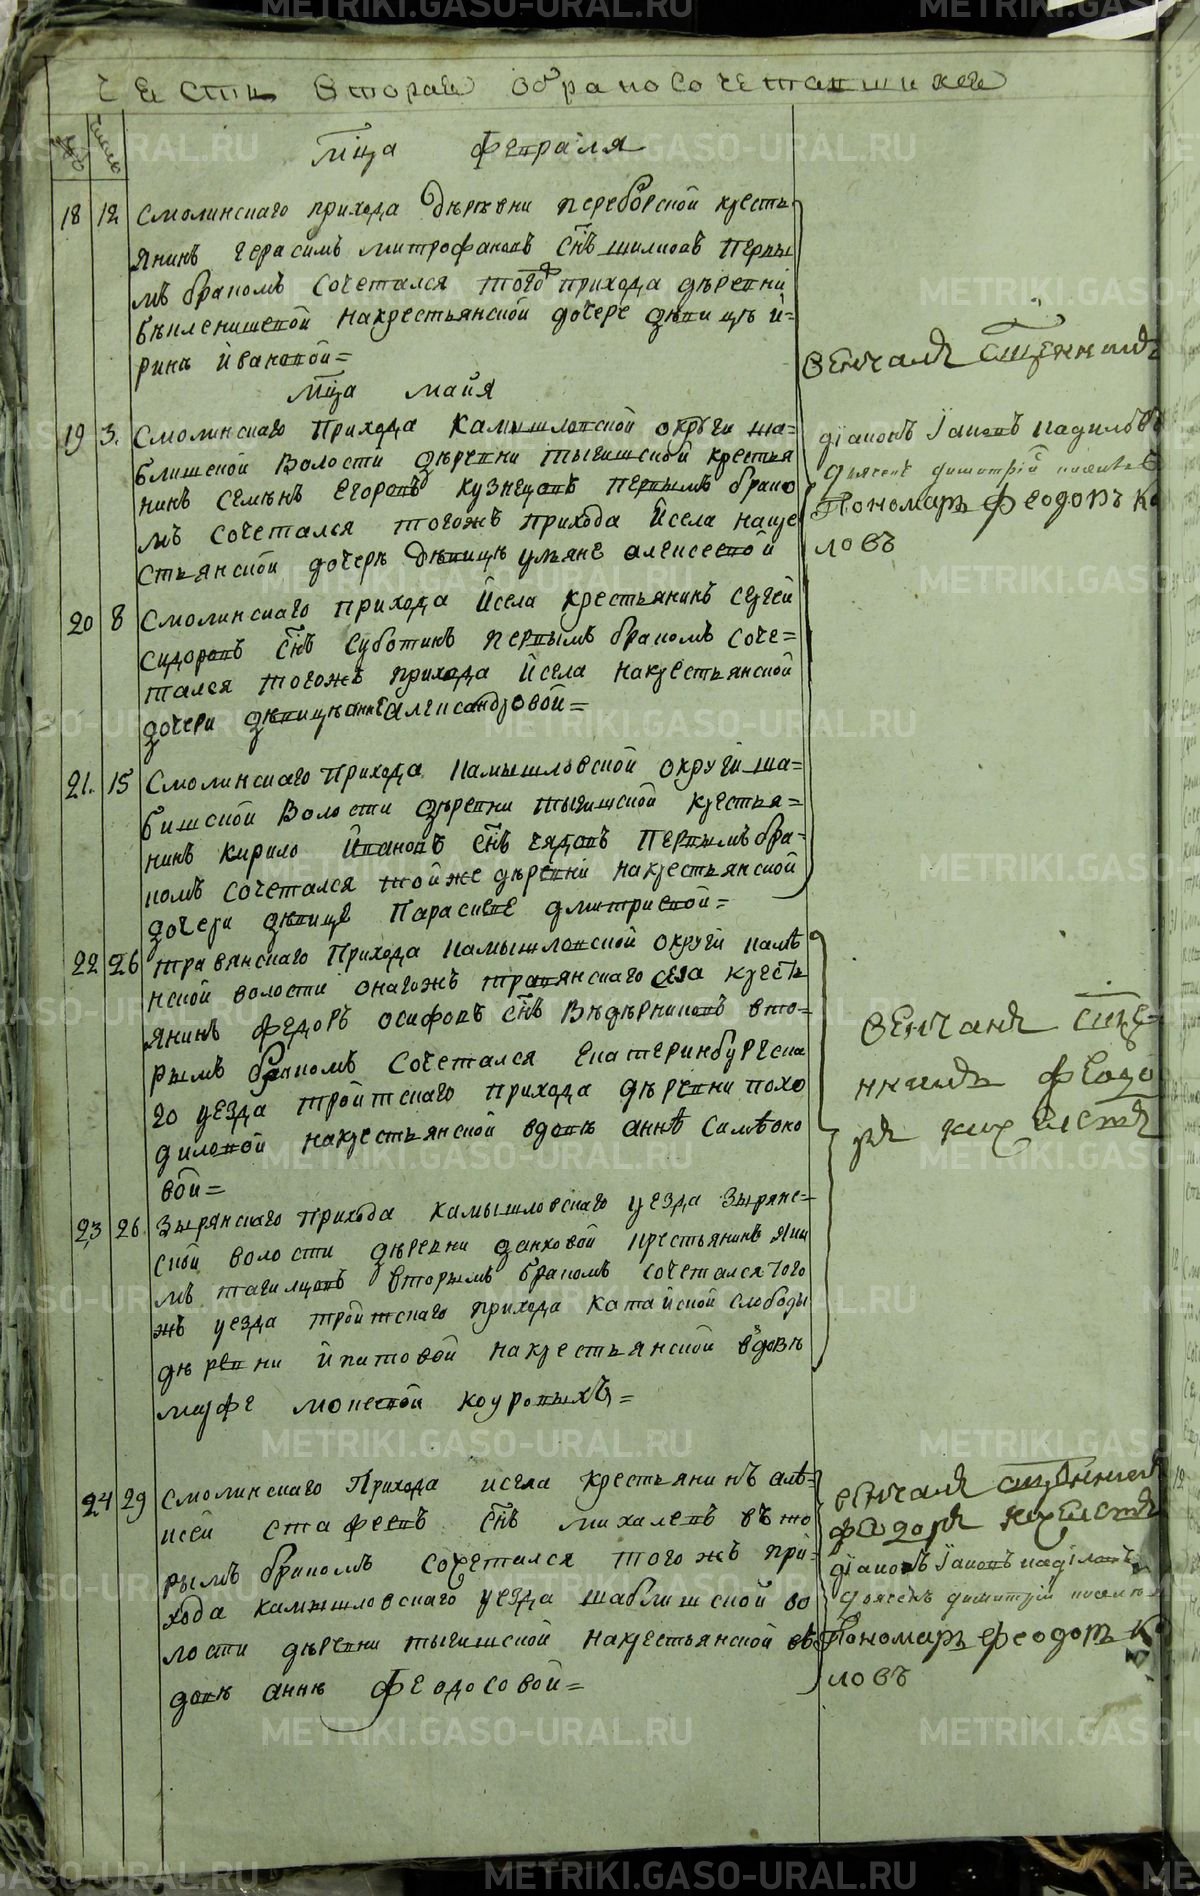 Часть вторая о бракосочетавшихся
число
мца февраля
18 12 Смолинскаго прихода деревни переборской кресть
янинъ герасимъ митрофановъ снъ шилковъ первы
мъ бракомъ сочетался тогож прихода деревни
на крестьянской дочере девицъ и=
ринъ ивановой=
мца майя
19 3. Смолинскаго прихода Камышловской округи ша=
блишской Волости деревни тыгишской крестья
нинъ семенъ егоровъ кузнецовъ первымъ брако
мъ сочетался тогожъ прихода и села на кре
стьянской дочеръ девицъ ульяне алексеевой
20 8 Смолинскаго прихода и села крестьянинъ сергей
сидоровъ снъ суботинъ первымъ бракомъ соче=
тался тогожъ прихода и села на крестьянской
дочери девицъ анне александровой=
21. 15 Смолинскаго прихода камышловской округи ша=
бишской Волости деревни тыгишской крестья=
нинъ кирило ивановъ снъ чядовъ первымъ бра-
комъ сочетался той же деревни на крестьянской
дочери девице Парасиве дмитриевой=
22 26 травянскаго прихода камышловской округи каме
нской волости онагожъ травянскаго села кресть
янинъ федоръ осифовъ снъ Ведерниковъ вто=
рымъ бракомъ сочетался екатеринбургска
го уезда троитскаго прихода деревни похо
диловой на крестьянской вдове анне
вой=
23 26. Зырянскаго прихода камышловскаго уезда зырянс=
ской волости деревни данховой крестьянинъ яки
мъ тагилцовъ вторымъ бракомъ сочетался того
жъ уезда троитскаго прихода катайской слободы
деревни ипатовой на крестьянской вдовъ
марфе мокеевой коуровыхъ=
24 29 Смолинскаго прихода и села крестьянинъ але=
ксей стафеевъ снъ михалевъ вто
рымъ бракомъ сочетался тогожъ при-
хода камышловскаго уезда шаблишской во
лости деревни тыгишской на крестьянской в
довъ анне феодосовой=
Венчалъ сщенникъ
діаконъ Іаковъ кадиловъ
дьячекъ димитрій
Пономарь феодоръ Ко
ловъ
Венчанъ сще=
нникъ феодо
ръ
венчалъ сщенникъ
федоръ
діаконъ Іаковъ кадиловъ
дьячекъ димитрій
Пономарь феодоръ Ко
ловъ
METRIKI.GASO-URAL.RU